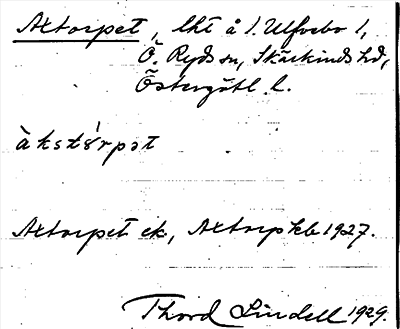 Axtorpet, lht å 1. Ulfvebo 1,
Ö. Ryds sn, Skärkinds hd,
Östergötl. l.
àkstó̀rpət
Axtorpet ek, Axtorp kb 1927.
Thord Lindell 1929.